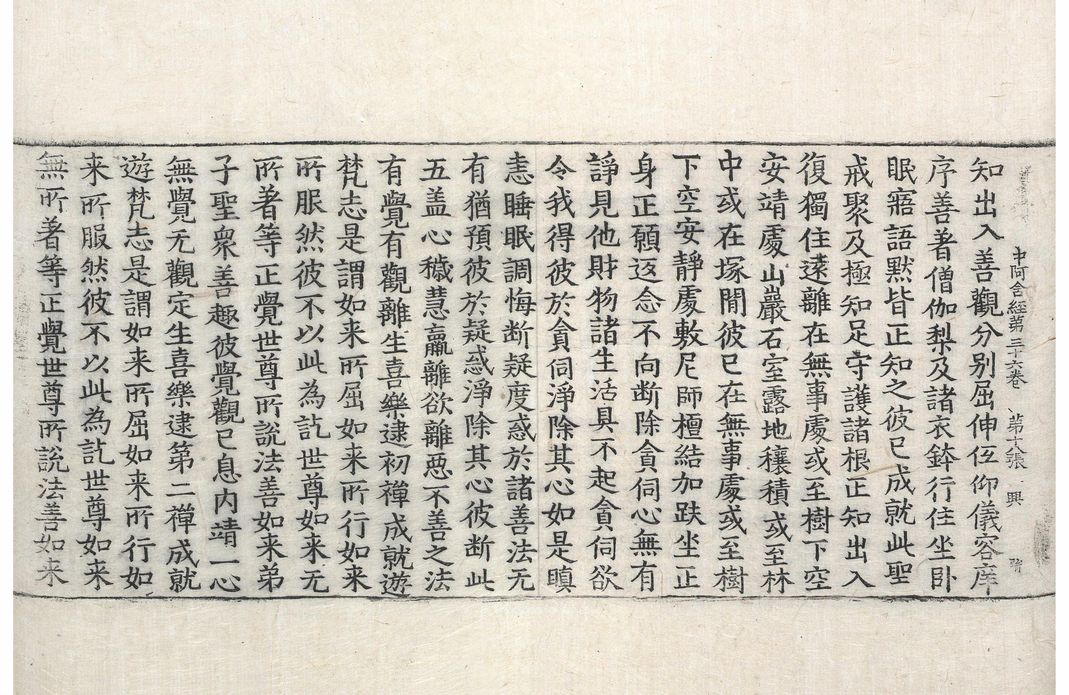 中阿含經第三十六卷 第十張 興
知出入善觀分別屈伸伍仰儀容庠
序善著僧伽梨及諸衣鉢行住坐卧
眠寤語默皆正知之彼已成就此聖
戒聚及極知足守護諸根正知出入
復獨住遠離在無事處或至樹下空
安靖處山巖石室露地穰積或至林
中或在塚間彼已在無事處或至樹
下空安靜處敷尼師檀結加趺坐正
身正願返念不向断除貪伺心無有
諍見他財物諸生活具不起貪伺欲
令我得彼於貪伺淨除其心如是瞋
恚睡眠調悔断疑度惑於諸善法无
有猶預彼於疑惑淨除其心彼断此
五盖心穢慧羸離欲離惡不善之法
有覺有觀離生喜樂逮初禪成就遊
梵志是謂如来所屈如来所行如来
所服然彼不以此為訖世尊如来无
所著等正覺世尊所說法善如来弟
子聖衆善趣彼覺觀已息内靖一心
無覺无觀定生喜樂逮第二禪成就
遊梵志是謂如来所屈如来所行如
来所服然彼不以此為訖世尊如来
無所著等正覺世尊所說法善如来